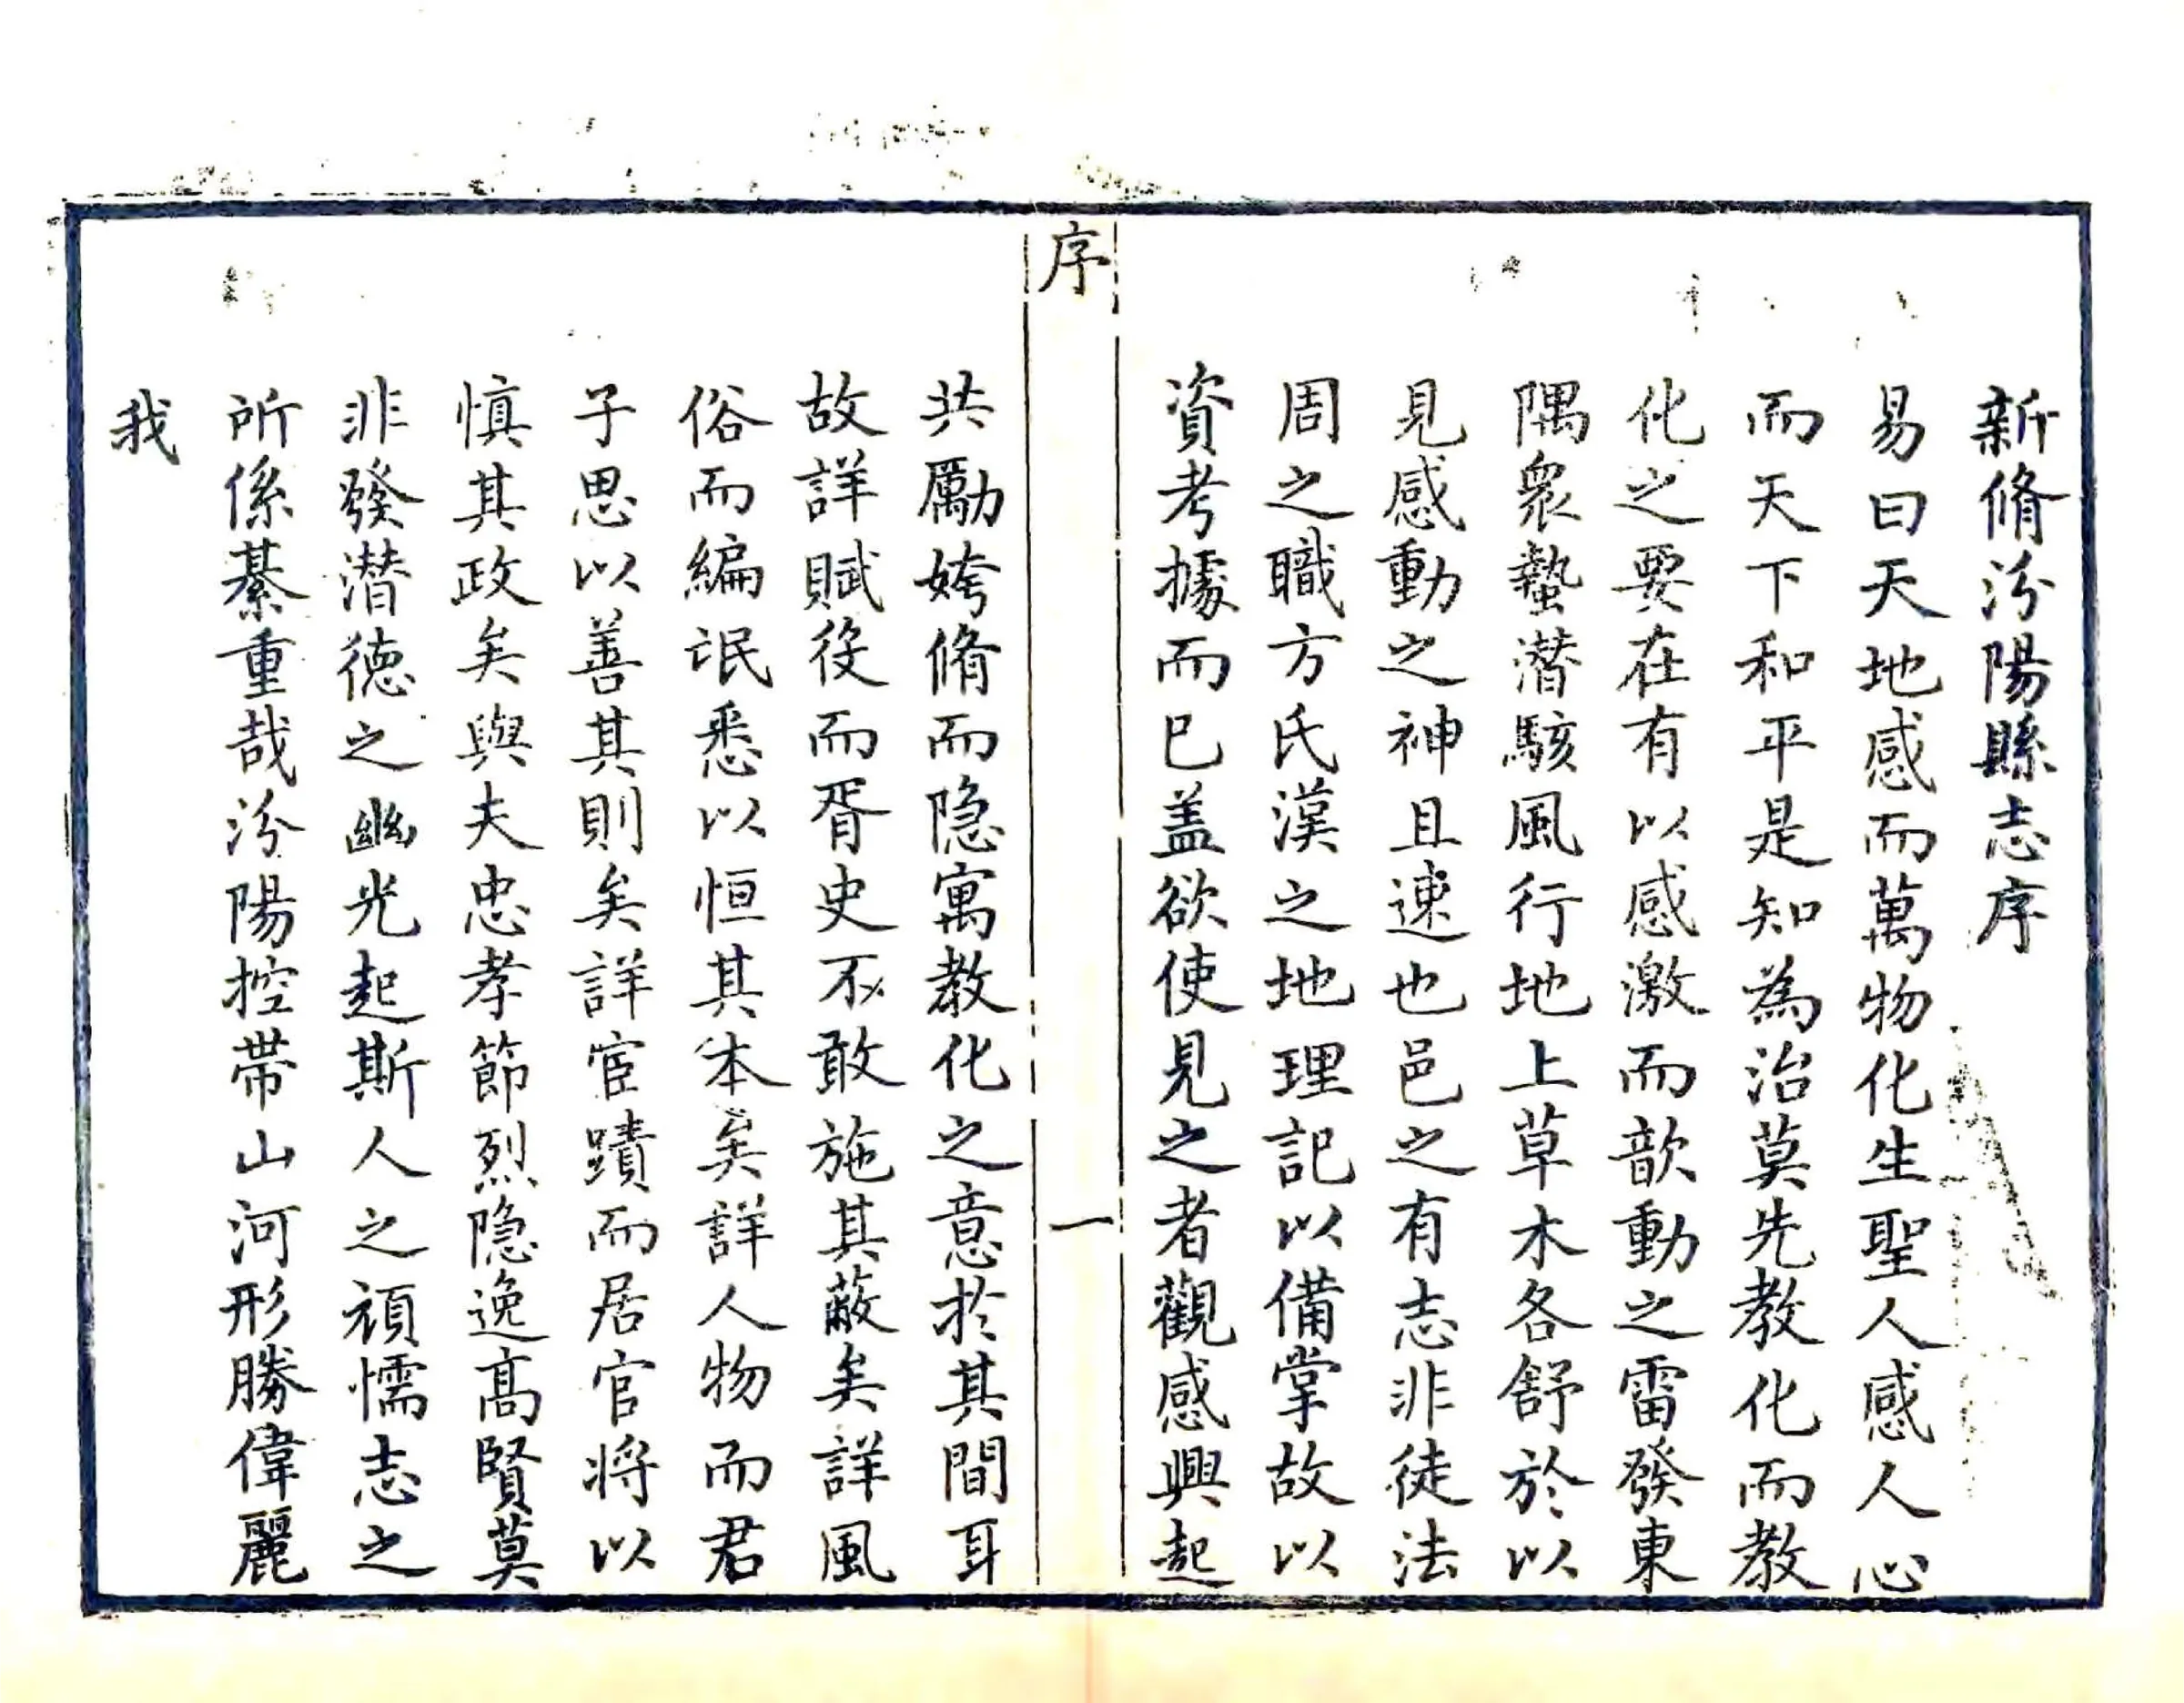 新脩汾陽縣志序
易曰天地感而萬物化生聖人感人心
而天下和平是知為治莫先教化而教
化之要在有以感激而歆動之雷發東
隅衆蟄潛駭風行地上草木各舒於以
見感動之神且速也邑之有志非徒法
周之職方氏漢之地理記以備掌故以
資考據而已盖欲使見之者觀感興起
序
一
共勵姱脩而隐寓教化之意扵其間耳
故詳賦役而胥史不敢施其蔽矣詳風
俗而編氓悉以恒其本矣詳人物而君
子思以善其則矣詳宦蹟而居官将以
慎其政矣與夫忠孝節烈隐逸髙賢莫
非發潜徳之幽光起斯人之頑懦志之
所係綦重哉汾陽控帶山河形勝偉麗
我